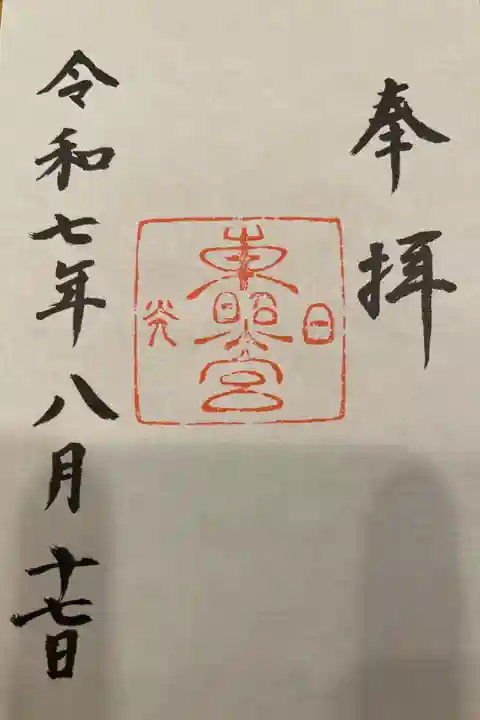 奉拝
日
東照宮
光
令和七年八月十七日